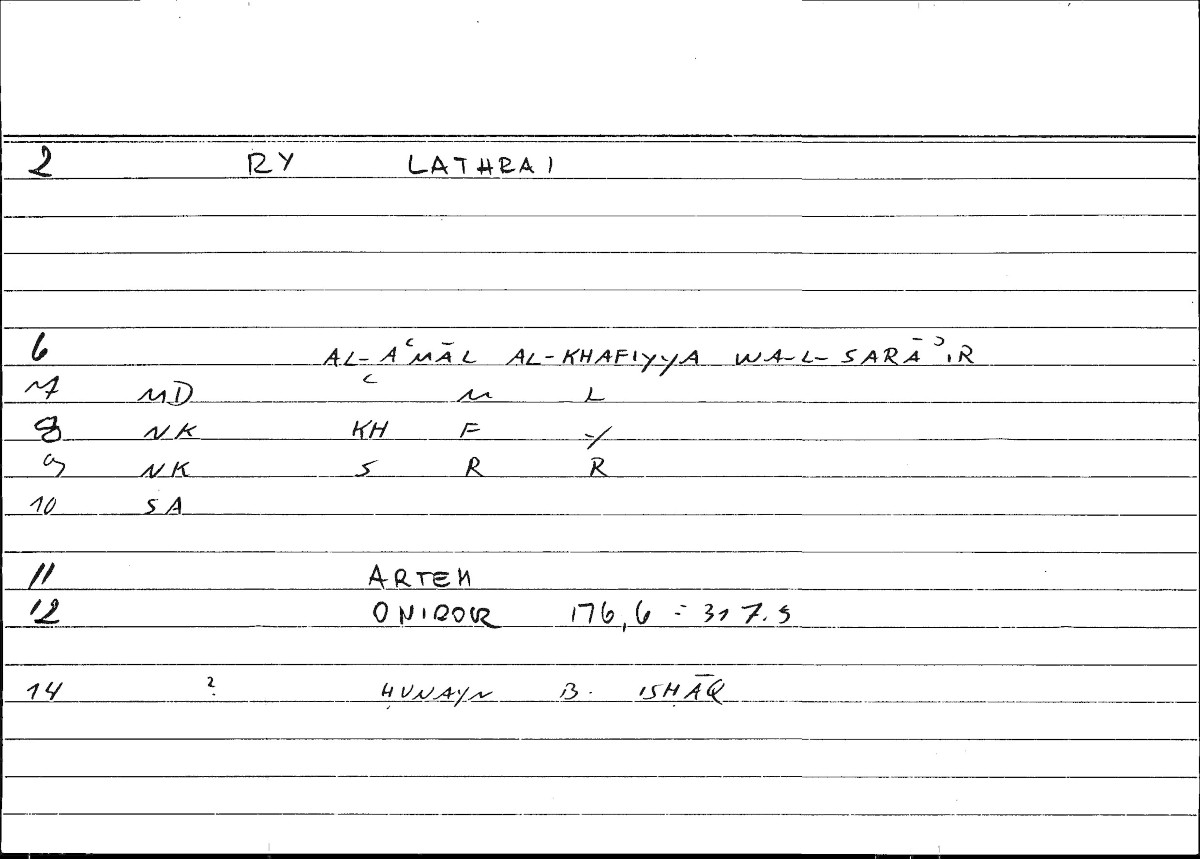 2 RY LATHRAI
6 AL-AʿMĀL AL-KHAFIYYA WA-L-SARĀʾIR
7 MD ʿ M L
8 NK KH F -/
9 NK S R R
10 SA
11 ARTEM
12 ONIROCR 176,6 = 317.9
14 ? ḤUNAYN B. ISḤĀQ